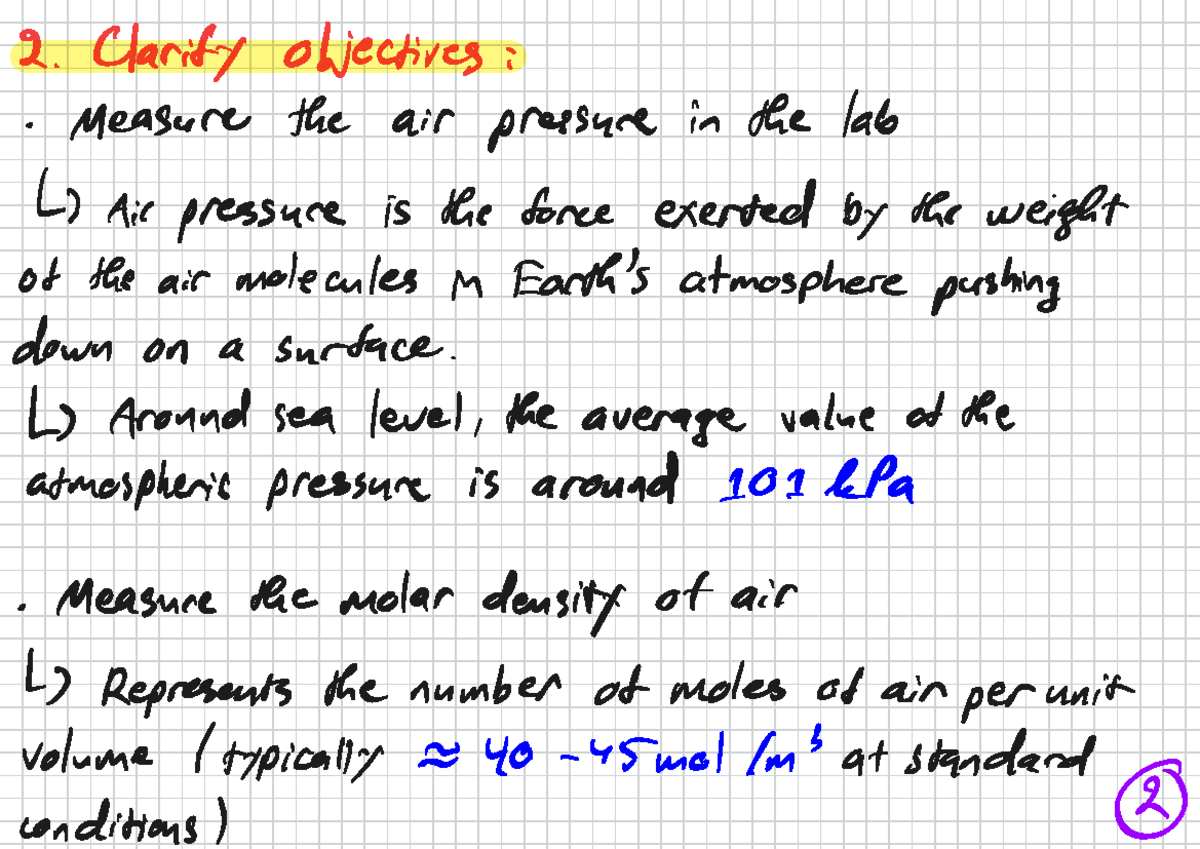 2. Clarify objectives:
. Measure the air pressure in the lab
↳ Air pressure is the force exerted by the weight
of the air molecules in Earth's atmosphere pushing
down on a surface.
↳ Around sea level, the average value of the
atmospheric pressure is around 101 kPa
. Measure the molar density of air
↳ Represents the number of moles of air per unit
volume (typically ≈ 40 - 45 mol /m³ at standard
conditions)
2